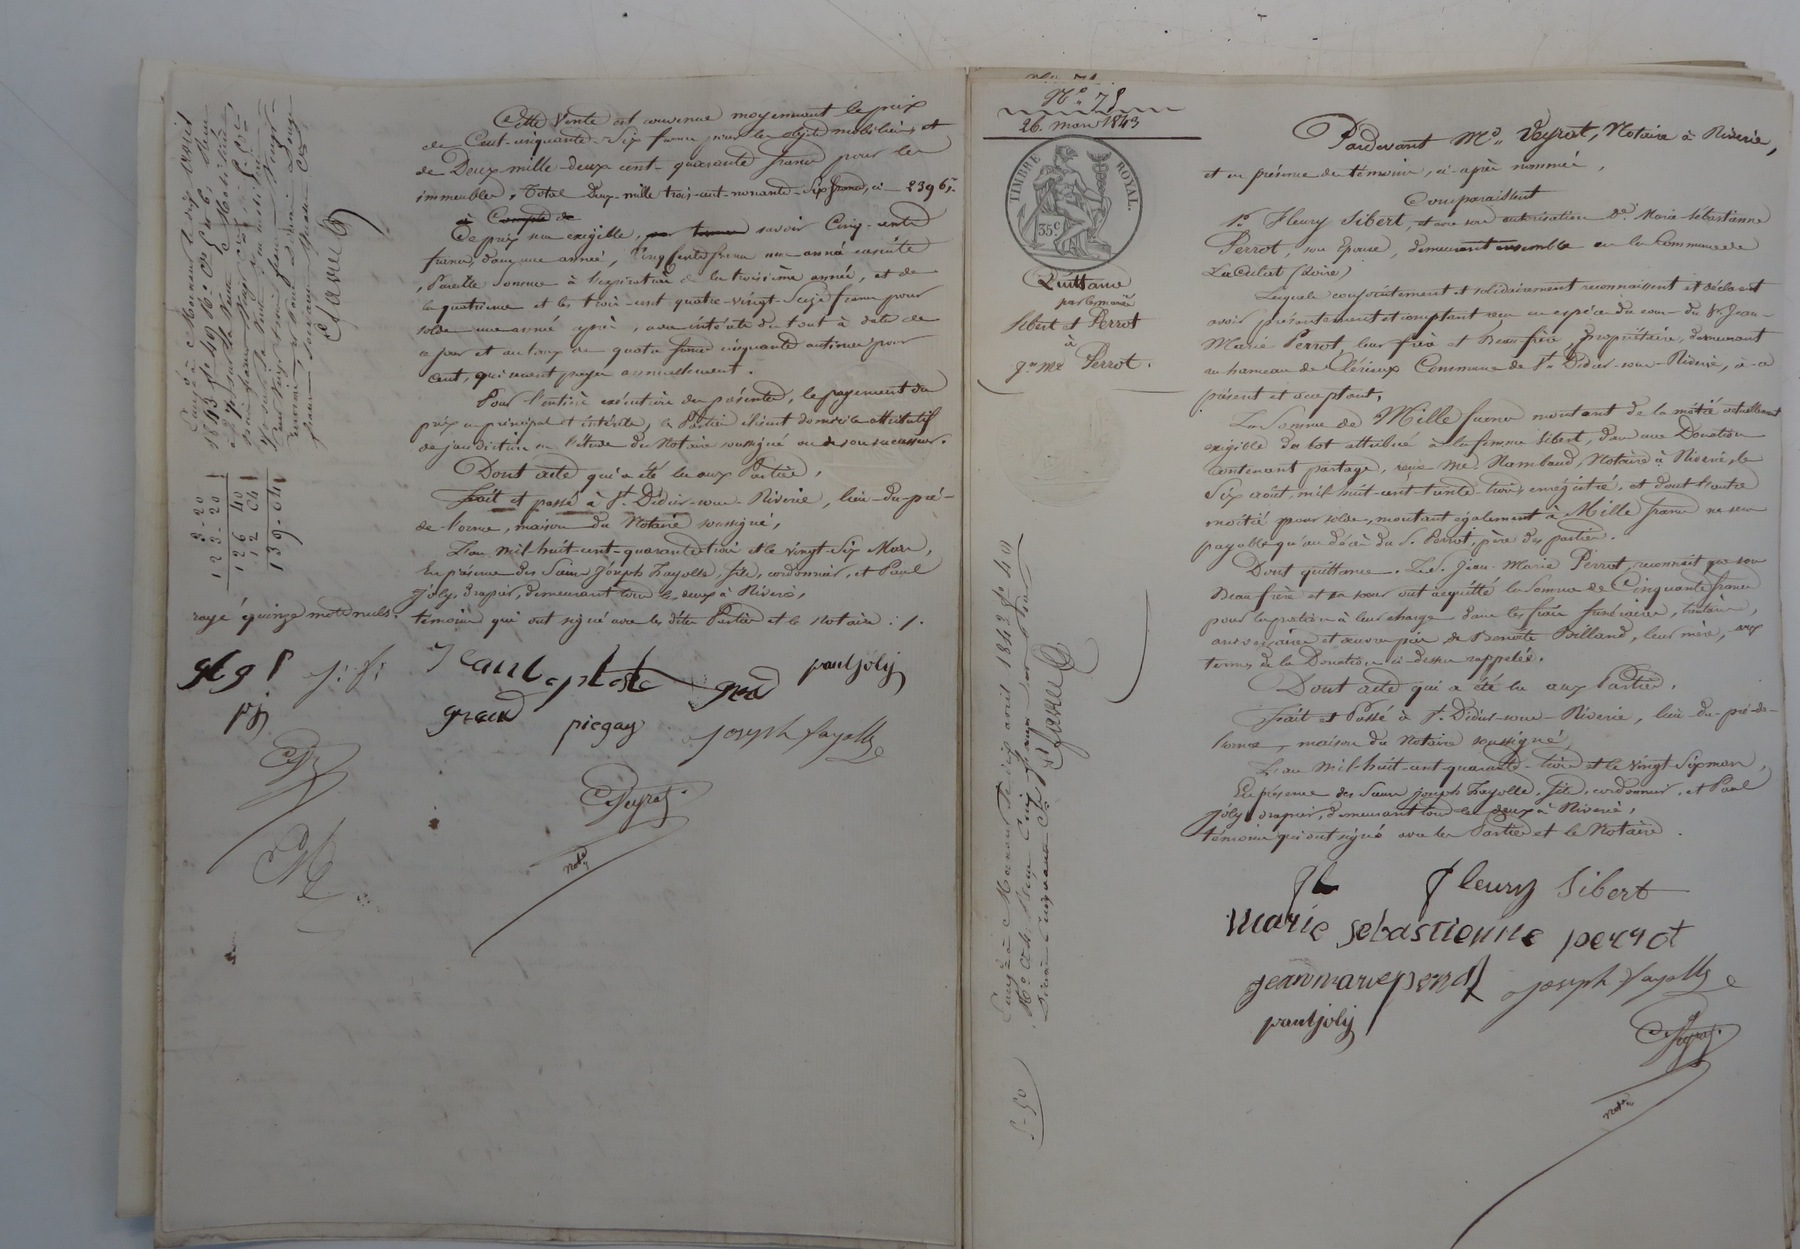 Cette vente est convenue moyennant le prix
de Cent-cinquante-Six francs pour les objets mobiliers et
de Deux mille-deux cent-quarante francs pour les
immeubles, Total deux-mille trois-cent-nonante-six francs, ci — 2396f.
à Compte de
Ce prix sera exigible, savoir Cinq-cents
francs, dans une année, Cinq cents francs une année ensuite
, Pareille somme à l'expiration de la troisième année, et de
la quatrième et les trois-cent quatre-vingt-Seize francs pour
solde une année après, avec intérêts du tout à dater de
ce jour et au taux de quatre francs cinquante centimes pour
cent, qui seront payés annuellement.
Pour l'entière exécution des présentes, le payement du
prix en principal et intérêts, les Parties élisent domicile attributif
de jurisdiction en l'étude du Notaire soussigné ou de son successeur.
Dont acte qui a été lu aux Parties,
Fait et passé à St. Didier-sous-Riverie, lieu-du-pré-
de l'orme, maison du Notaire soussigné,
L'an mil-huit-cent-quarante trois et le vingt-Six Mars,
En présence des Sieurs Joseph Fayolle, fils, cordonnier, et Paul
Joly, drapier, demeurant tous les deux à Riverie,
témoins qui ont signé avec les dites Parties et le Notaire :/.
rayé quinze mots nuls.
J: f:
Jean Baptiste grad
paul joly
pj
graud
piegay
joseph fayolle
Peyrot
Not.
3-20
123-20
126 40
12 64
139-04
Favre
No. 78
26. mars 1843
TIMBRE ROYAL.
35c
Quittance
par les mariés
Sibert et Perrot
à
Jn. Me. Perrot.
Pardevant Me. Peyrot, Notaire à Riverie,
et en présence des témoins, ci-après nommés,
Comparaissent
1o. Fleury Sibert, et avec son autorisation De. Marie-Sébastienne
Perrot, son épouse, demeurant ensemble en la Commune de
La Cula (Loire)
Lesquels conjointement et solidairement reconnaissent et déclarent
avoir présentement et comptant reçu en espèces du cours du Sr. Jean-
Marie Perrot, leur frère et Beau-frère, Propriétaire, demeurant
au hameau de Clérieux Commune de St. Didier-sous-Riverie, à ce
présent et acceptant,
La Somme de Mille francs montant de la moitié actuellement
exigible du lot attribué à la femme Sibert, dans une Donation
contenant partage, reçue Me. Rambaud, Notaire à Riverie, le
Six août, mil-huit-cent-trente-trois enregistré, et dont l'autre
moitié pour solde, montant également à Mille francs ne sera
payable qu'au décès du S. Perrot, père des parties.
Dont quittance. Led. Jean-Marie Perrot, reconnait que son
Beau frère et sa sœur ont acquitté la somme de Cinquante francs
pour la portion à leur charge dans les frais funéraires,
anniversaire et œuvres pies de Benoîte Billand, leur mère, aux
termes de la Donation ci-dessus rappelée.
Dont acte qui a été lu aux Parties.
Fait et Passé à St. Didier-sous-Riverie, lieu-du-pré-de-
l'orme, maison du Notaire soussigné,
L'an mil-huit-cent-quarante-trois et le vingt Six mars,
En présence des Sieurs Joseph Fayolle, fils, cordonnier, et Paul
Joly drapier, demeurant tous les deux à Riverie,
témoins qui ont signé avec les Parties et le Notaire.
fleury Sibert
Marie sébastienne perrot
jean marie perrot joseph fayolle
paul joly
Peyrot
Not.
Favre
5-50